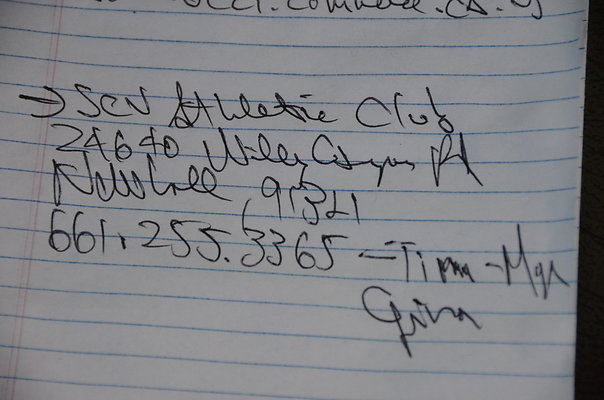 → SCV Athletic Club
24640 Wiley Canyon Rd
Newhall, 91321
661.255.3365 — Tina - Mgr
Gina